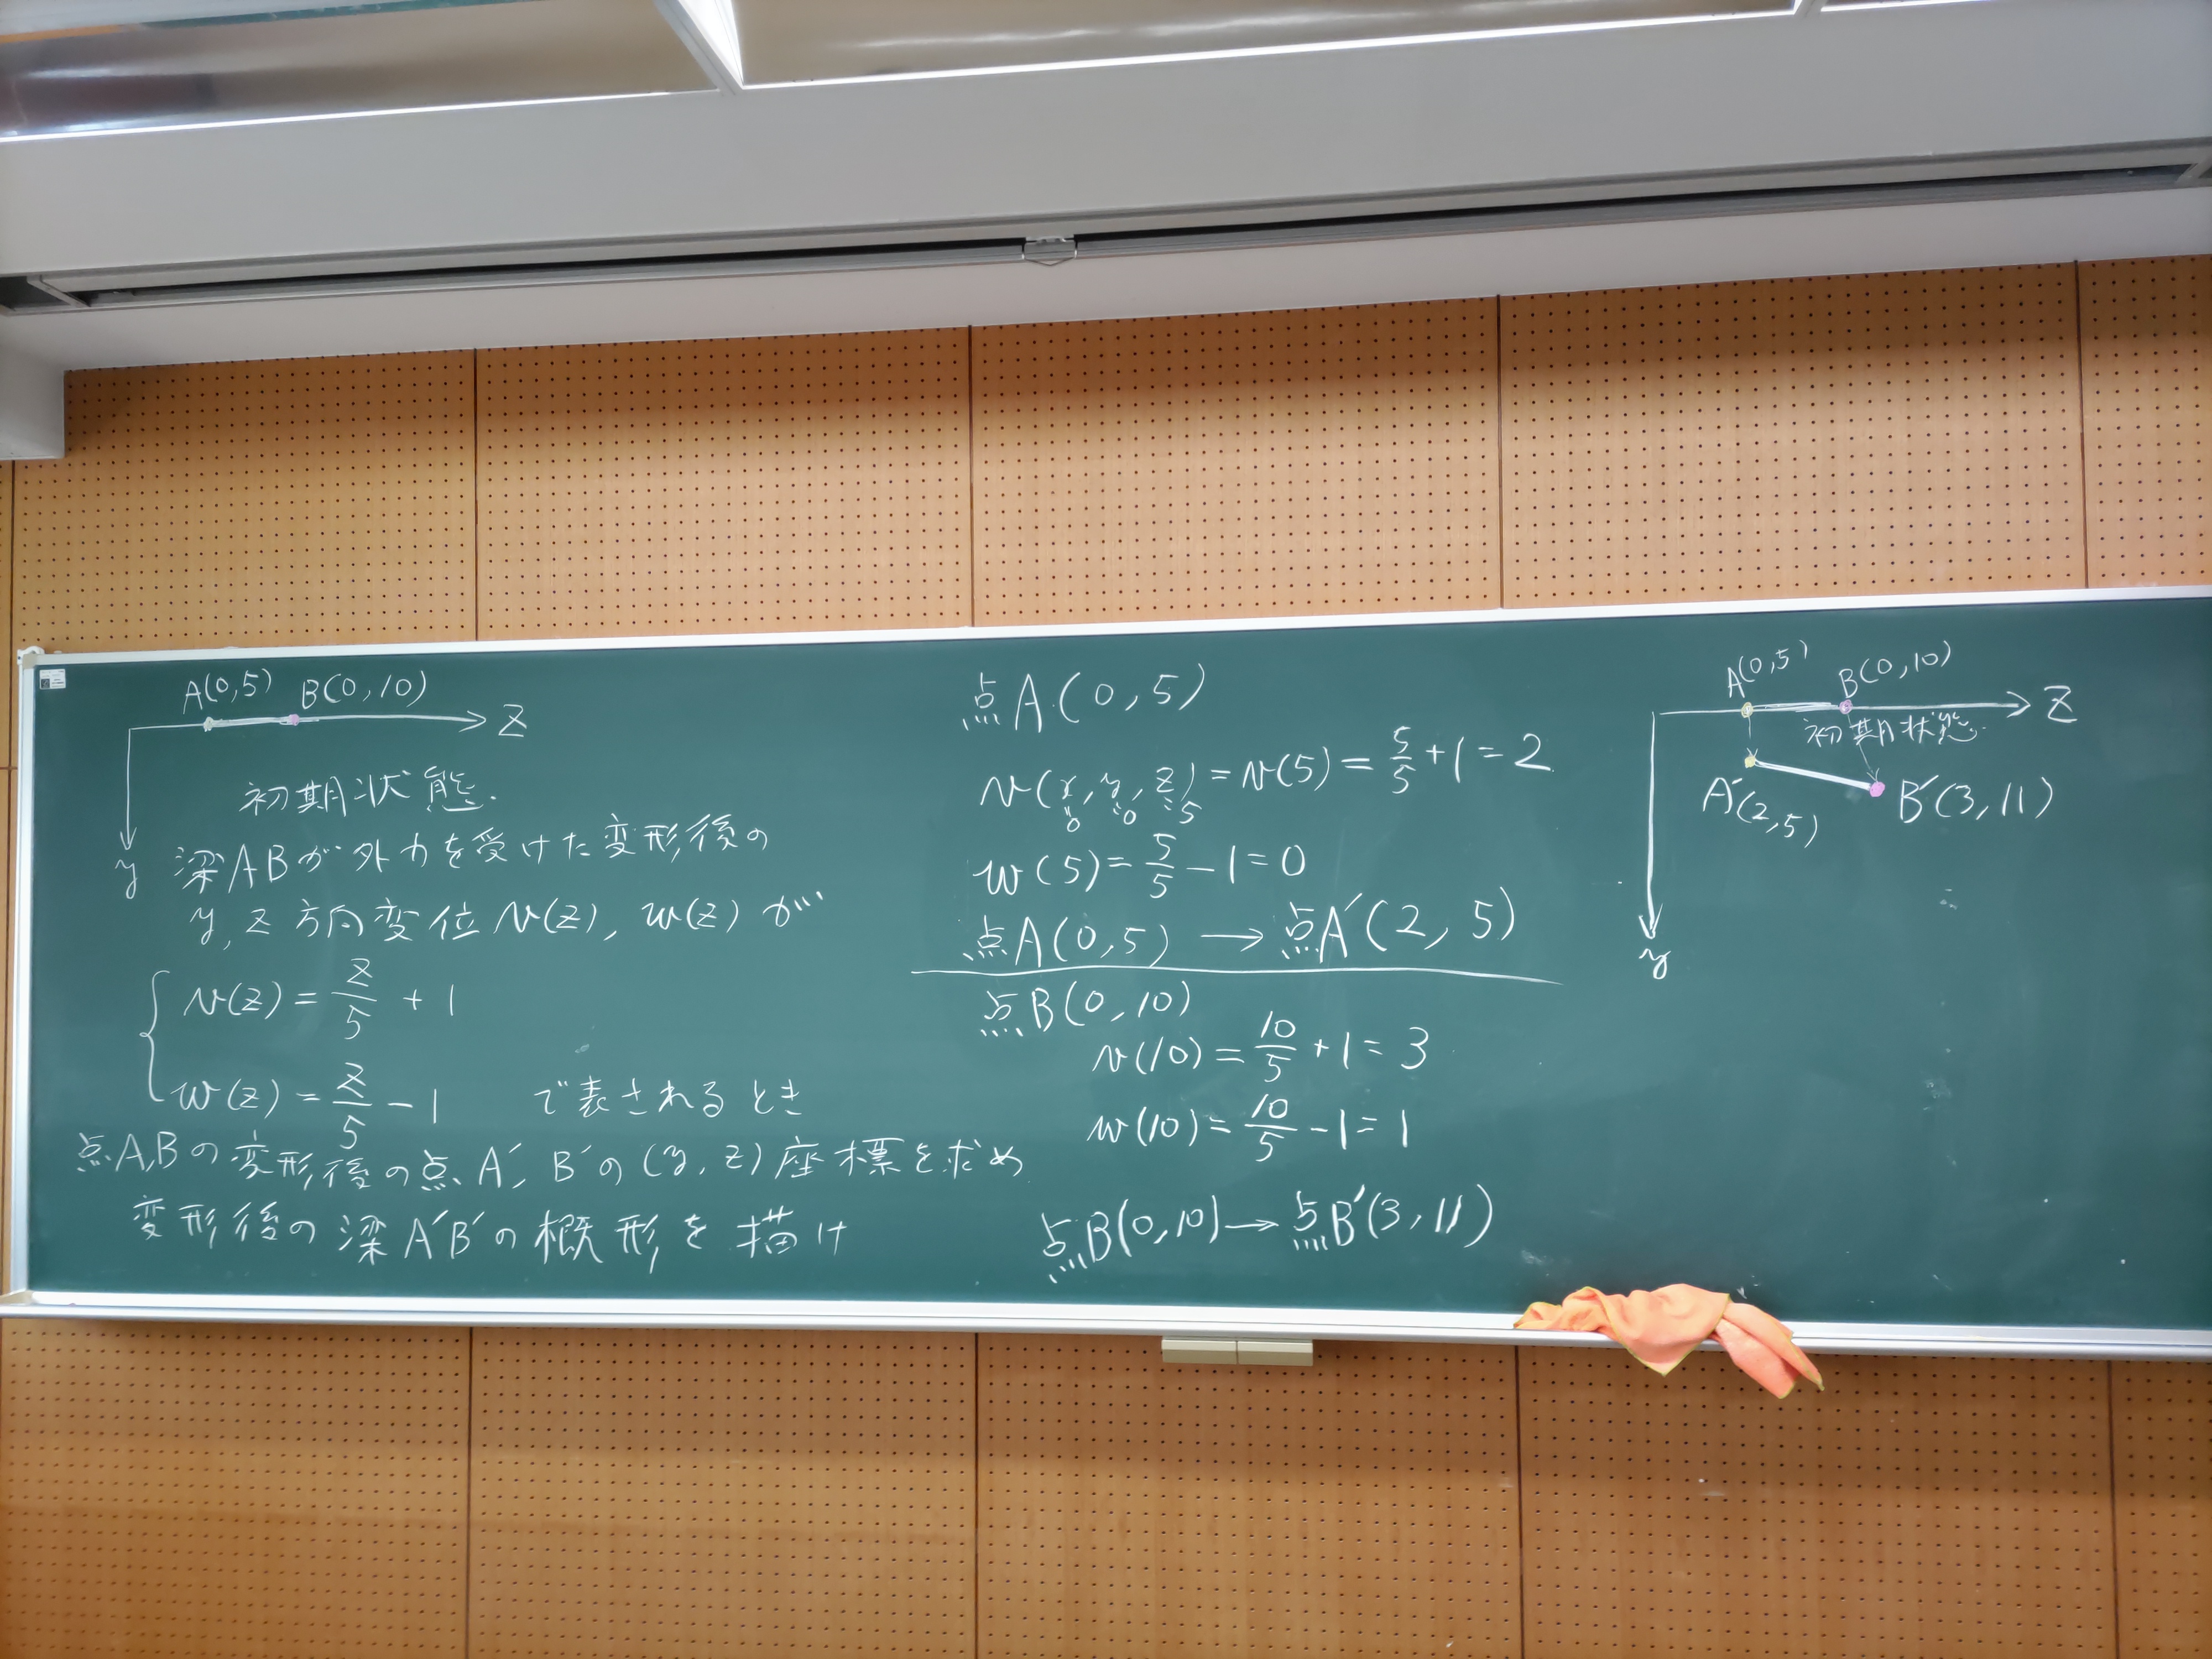 A(0,5) B(0,10)
z
y
初期状態.
梁ABが外力を受けた変形後の
y, z 方向変位 v(z), w(z) が
v(z) = z/5 + 1
w(z) = z/5 - 1 で表されるとき
点A,Bの変形後の点A´, B´の(y, z)座標を求め
変形後の梁A´B´の概形を描け
点A(0,5)
v(x, y, z) = v(5) = 5/5 + 1 = 2
0 0 5
w(5) = 5/5 - 1 = 0
点A(0,5) → 点A´(2, 5)
点B(0, 10)
v(10) = 10/5 + 1 = 3
w(10) = 10/5 - 1 = 1
点B(0,10) → 点B´(3, 11)
A(0,5) B(0,10)
z
初期状態.
A´(2,5) B´(3,11)
y